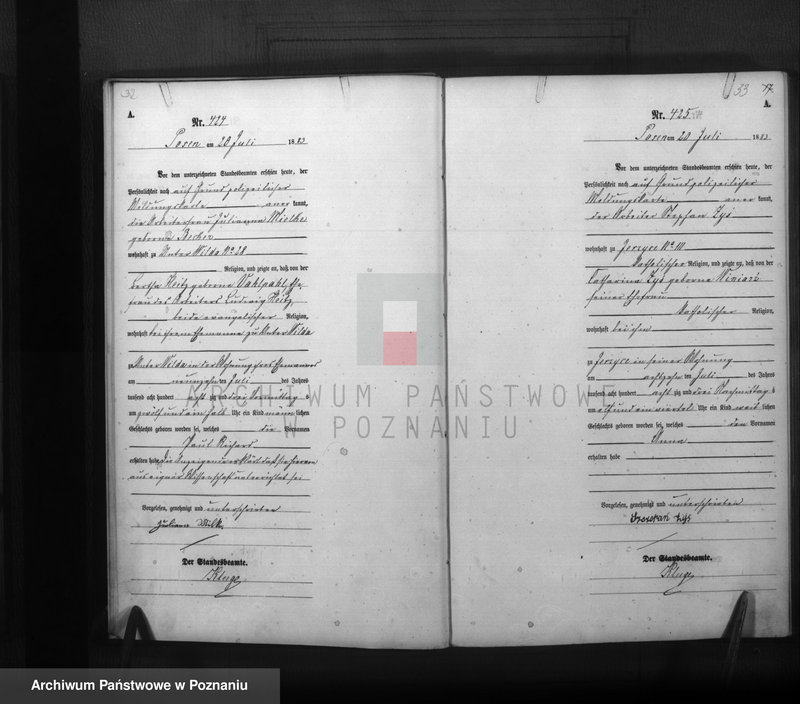 32
A.
Nr. 424
Posen am 20 Juli 1883
Vor dem unterzeichneten Standesbeamten erschien heute, der
Persönlichkeit nach auf Grund polizeilicher
Meldungskarte anerkannt,
die Arbeiterfrau Julianna Mielke
geborene Becker
wohnhaft zu Unter Wilda No 28
Religion, und zeigte an, daß von der
Bertha Reitz geborene Vahlpahl Ehe
frau des Arbeiters Ludwig Reitz,
beide evangelischer Religion,
wohnhaft bei ihrem Ehemanne zu Unter Wilda
zu Unter Wilda in der Wohnung ihres Ehemannes
am neunzehnten Juli des Jahres
tausend acht hundert achtzig und drei Vormittags
um zwölf und ein halb Uhr ein Kind männlichen
Geschlechts geboren worden sei, welches die Vornamen
Paul Richard
erhalten habe. Die Anzeigende erklärte daß sie hiervon
aus eigener Wissenschaft unterrichtet sei
Vorgelesen, genehmigt und unterschrieben
Der Standesbeamte.
Kluge
53 17
A.
Nr. 425
Posen am 20 Juli 1883
Vor dem unterzeichneten Standesbeamten erschien heute, der
Persönlichkeit nach auf Grund polizeilicher
Meldungskarte anerkannt,
der Arbeiter Stephan Zys
wohnhaft zu Jerzyce No 111
katholischer Religion, und zeigte an, daß von der
Catharina Zys geborene Winiarz
seiner Ehefrau
katholischer Religion,
wohnhaft bei ihm
zu Jerzyce in seiner Wohnung
am achtzehnten Juli des Jahres
tausend acht hundert achtzig und drei Nachmittags
um elf und ein viertel Uhr ein Kind weiblichen
Geschlechts geboren worden sei, welches den Vornamen
Anna
erhalten habe
Vorgelesen, genehmigt und unterschrieben
Der Standesbeamte.
Kluge
ARCHIWUM PAŃSTWOWE
W POZNANIU
Archiwum Państwowe w Poznaniu